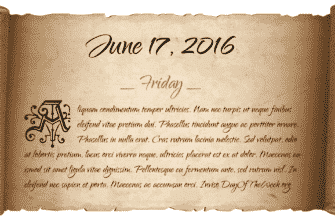 June 17, 2016
Friday
Aliquam condimentum tempor ultricies. Nam nec turpis at neque finibus
eleifend vitae pretium dui. Phasellus tincidunt augue ac porttitor ornare.
Phasellus in nulla erat. Cras rutrum lacinia molestie. Sed volutpat, odio
at lobortis pretium, lacus orci viverra neque, ultricies placerat est ex at dolor. Maecenas eu
ismod sit amet ligula vitae dignissim. Pellentesque eu fermentum ante, sed rutrum nisl. In
eleifend nec sapien et porta. Maecenas ac accumsan orci.